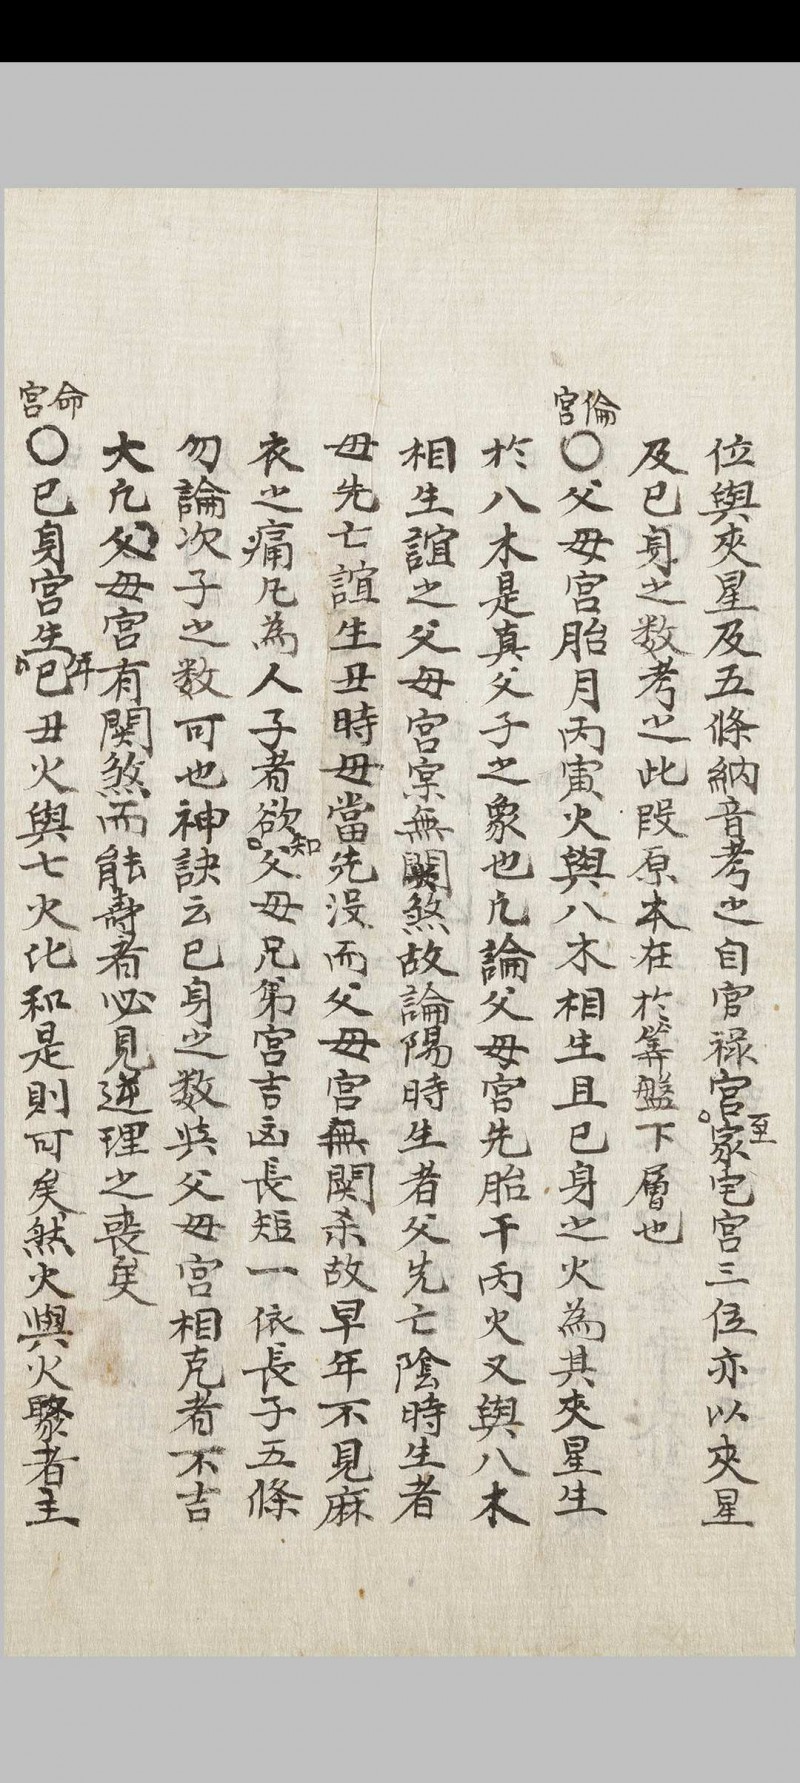 位與夾星及五條納音考之自官祿宮至家宅宮三位亦以夾星
及巳身之数考之此段原本在於筭盤下層也
倫宮
〇父母宮胎月丙寅火與八木相生且巳身之火為其夾星生
於八木是真父子之象也凡論父母宮先胎干丙火又與八木
相生誼之父母宮寀無關煞故論陽時生者父先亡陰時生者
母先亡誼生丑時母當先没而父母宮無関杀故早年不見麻
衣之痛凡為人子者欲知父母兄弟宮吉凶長短一依長子五條
勿論次子之数可也神訣云巳身之数與父母宮相克者不吉
大凡父母宮有関煞而能壽者必見逆理之喪矣
命宮
〇巳身宮生年巳丑火與七火化和是則可矣然火與火聚者主